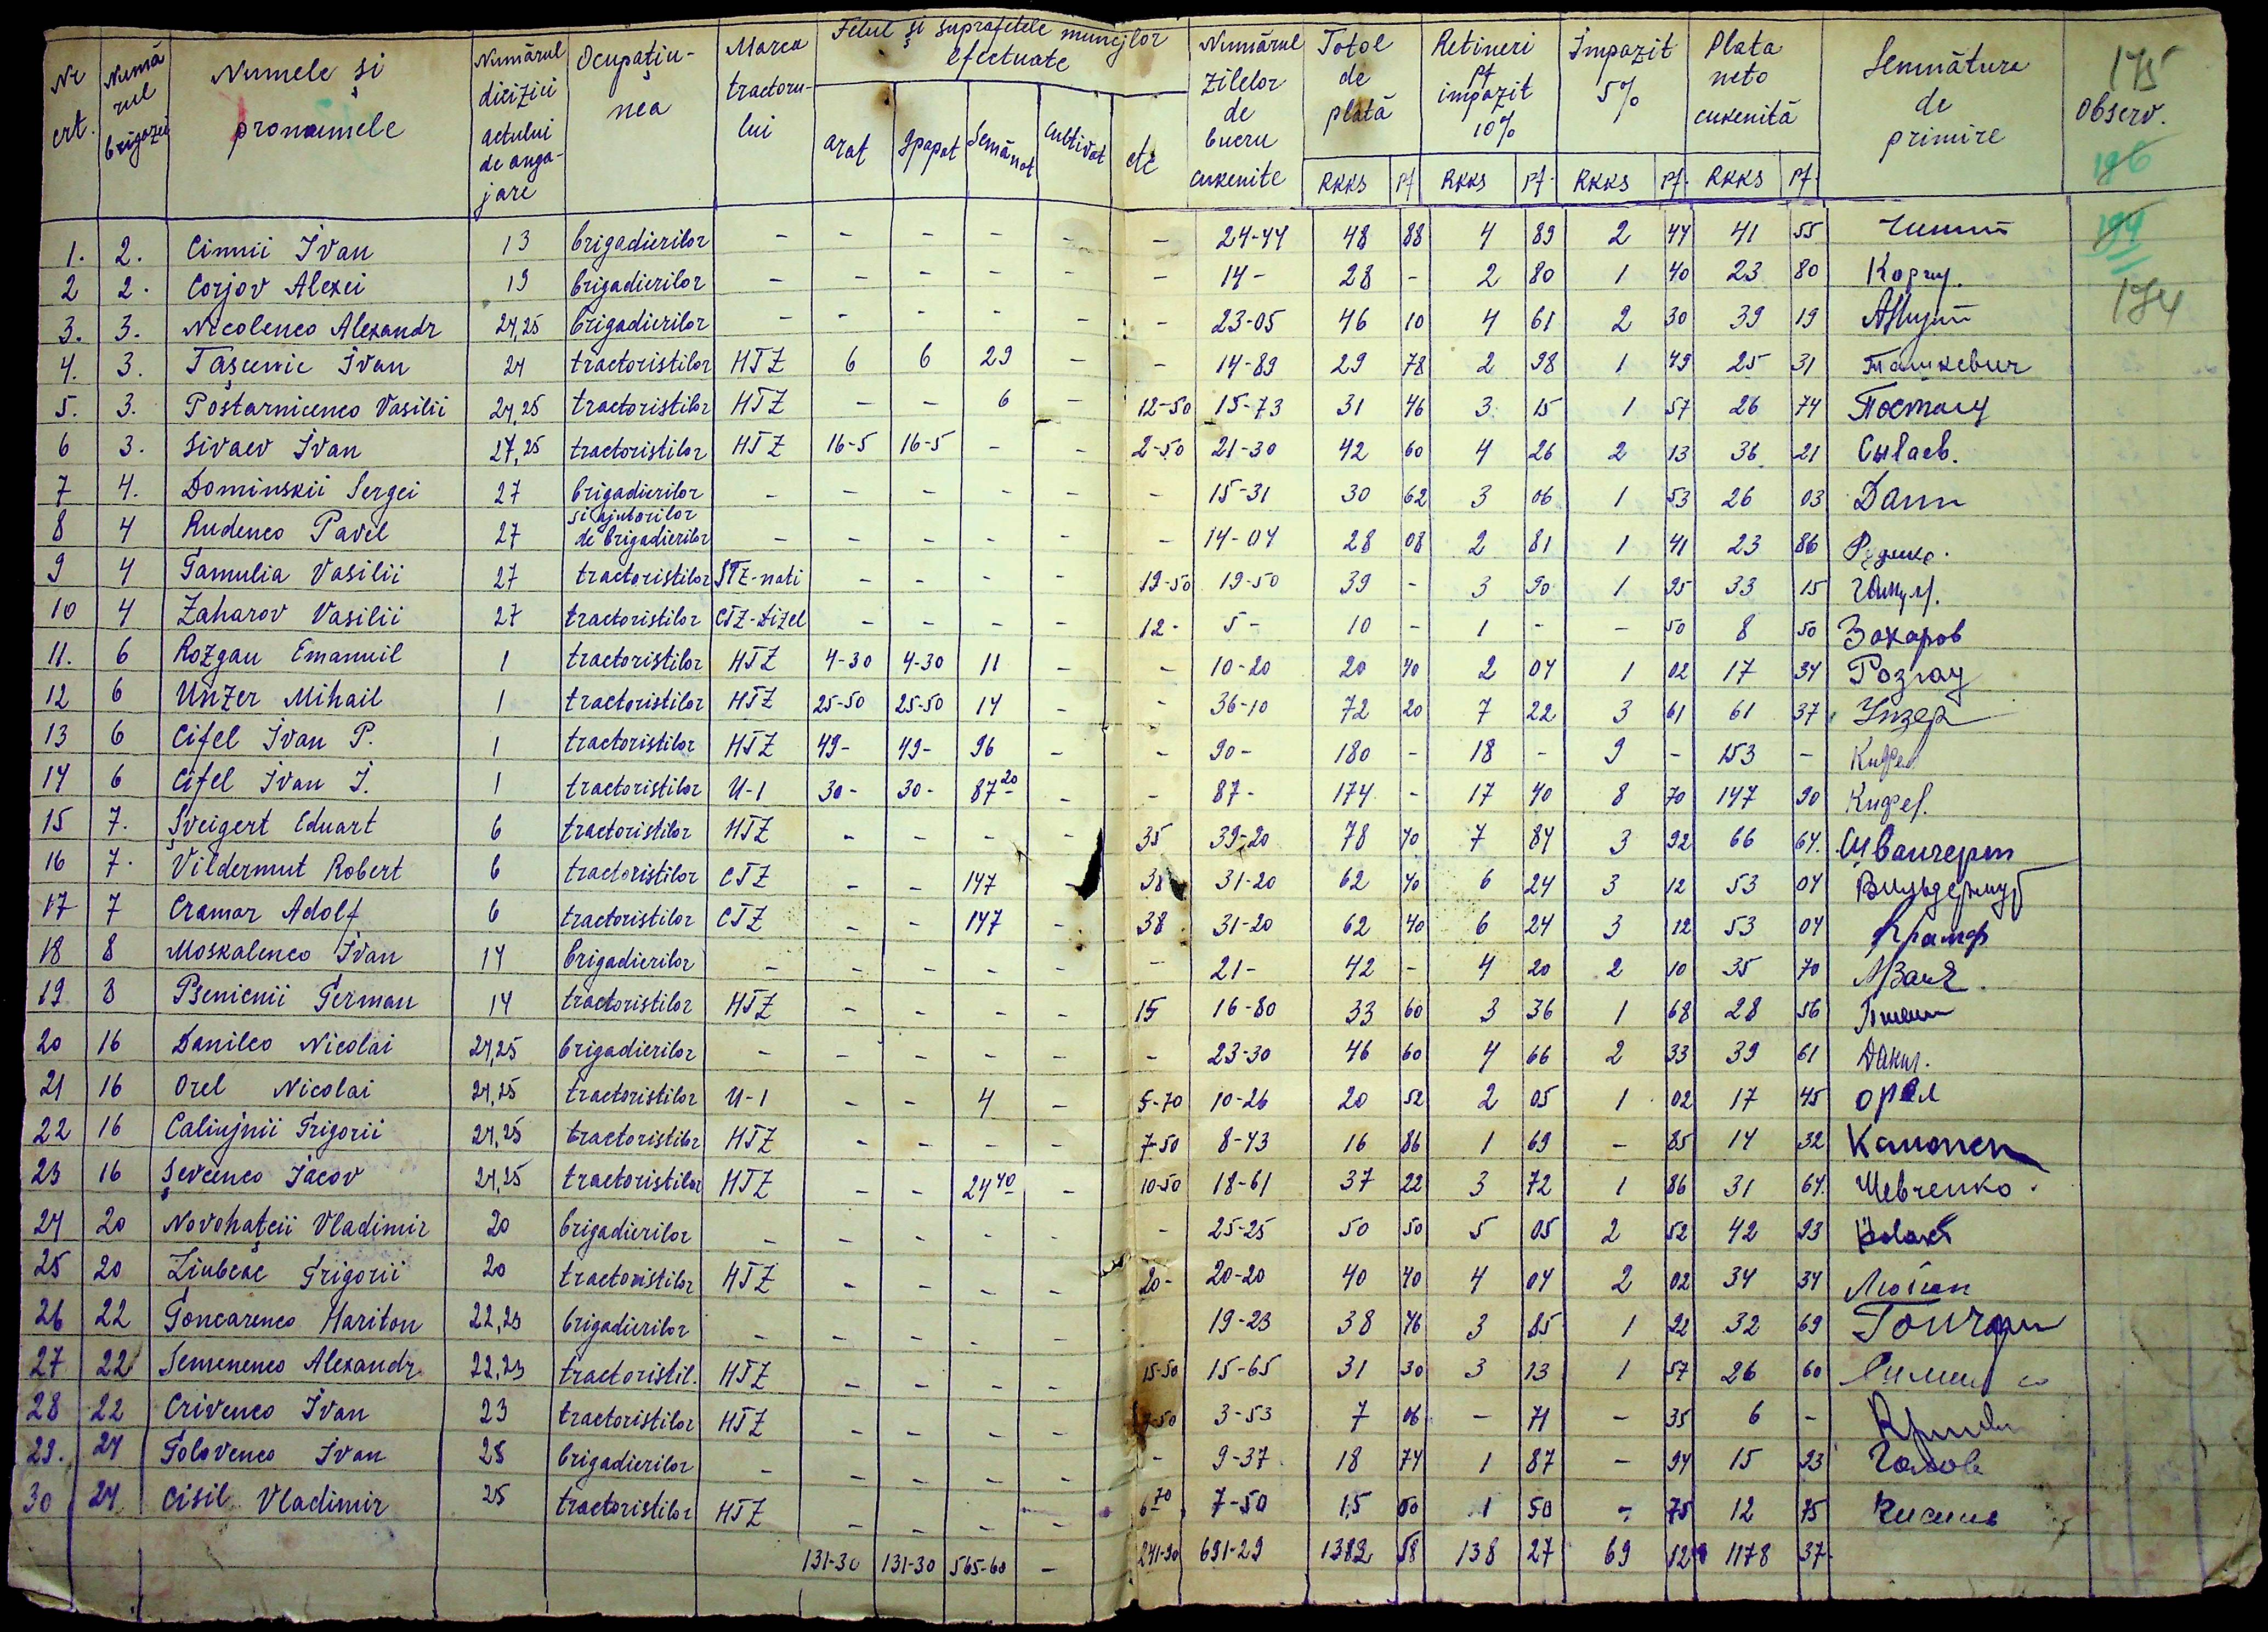 Nr crt. | Numărul brigăzii | Numele și pronumele | Numărul dicizici actului de angajare | Ocupațiunea | Marca tractorului | Felul și suprafețele muncilor efectuate | Numărul zilelor de lucru cukenite | Total de plată | Retineri pt impozit 10% | Impazit 5% | Plata neto cukenită | Semnătura de primire | Observ.
arat | grapat | Semănat | Cultivat | etc | RKKS | Pf | RKKS | Pf. | RKKS | Pf. | RKKS | Pf.
175
196
194
174
1. 2. Cinnii Ivan 13 brigadierilor - - - - - - 24-44 48 88 4 89 2 44 41 55
2 2. Corjov Alexei 19 brigadierilor - - - - - - 14- 28 - 2 80 1 40 23 80
3. 3. Nicolenco Alexandr 24,25 brigadierilor - - - - - - 23-05 46 10 4 61 2 30 39 19
4. 3. Tașcevic Ivan 24 tractoristilor HTZ 6 6 29 - - 14-89 29 78 2 98 1 49 25 31 Ташкевич
5. 3. Postarnicenco Vasilii 24,25 tractoristilor HTZ - - 6 - 12-50 15-73 31 46 3 15 1 57 26 74
6 3. Sivaev Ivan 27,25 tractoristilor HTZ 16-5 16-5 - - 2-50 21-30 42 60 4 26 2 13 36 21 Сываев.
7 4. Dominskii Sergei 27 brigadierilor - - - - - - 15-31 30 62 3 06 1 53 26 03
8 4 Rudenco Pavel 27 si ajutorilor de brigadierilor - - - - - - 14-04 28 08 2 81 1 41 23 86
9 4 Gamulia Vasilii 27 tractoristilor STZ-nati - - - - 19-50 19-50 39 - 3 90 1 95 33 15
10 4 Zaharov Vasilii 27 tractoristilor CTZ-Dizel - - - - 12- 5- 10 - 1 - - 50 8 50 Захаров
11. 6 Rozgau Emanuil 1 tractoristilor HTZ 4-30 4-30 11 - - 10-20 20 40 2 04 1 02 17 34 Розгау
12 6 Unzer Mihail 1 tractoristilor HTZ 25-50 25-50 14 - - 36-10 72 20 7 22 3 61 61 37 Унзер
13 6 Cifel Ivan P. 1 tractoristilor HTZ 49- 49- 96 - - 90- 180 - 18 - 9 - 153 - Кифел
14 6 Cifel Ivan I. 1 tractoristilor U-1 30- 30- 87 20 - - 87- 174 - 17 40 8 70 147 90 Кифел.
15 7. Șveigert Eduart 6 tractoristilor HTZ - - - - 35 39-20 78 40 7 84 3 92 66 64.
16 7. Vildermut Robert 6 tractoristilor CTZ - - 147 - 38 31-20 62 40 6 24 3 12 53 04 Вильдермут
17 7 Cramar Adolf 6 tractoristilor CTZ - - 147 - 38 31-20 62 40 6 24 3 12 53 04
18 8 Moskalenco Ivan 14 brigadierilor - - - - - - 21- 42 - 4 20 2 10 35 70
19 8 Psenicnii German 14 tractoristilor HTZ - - - - 15 16-80 33 60 3 36 1 68 28 56
20 16 Danilco Nicolai 24,25 brigadierilor - - - - - - 23-30 46 60 4 66 2 33 39 61 Данил.
21 16 Orel Nicolai 24,25 tractoristilor U-1 - - 4 - 5-70 10-26 20 52 2 05 1 02 17 45 орел
22 16 Caliujnii Grigorii 24,25 tractoristilor HTZ - - - - 7-50 8-43 16 86 1 69 - 85 14 32
23 16 Șevcenco Iacov 24,25 tractoristilor HTZ - - 24 40 - 10-50 18-61 37 22 3 72 1 86 31 64. Шевченко.
24 20 Novohațcii Vladimir 20 brigadierilor - - - - - - 25-25 50 50 5 05 2 52 42 93
25 20 Liubcac Grigorii 20 tractoristilor HTZ - - - - 20- 20-20 40 40 4 04 2 02 34 34
26 22 Goncarenco Hariton 22,23 brigadierilor - - - - - 19-23 38 46 3 85 1 92 32 69
27 22 Semenenco Alexandr 22,23 tractoristil. HTZ - - - - 15-50 15-65 31 30 3 13 1 57 26 60
28 22 Crivenco Ivan 23 tractoristilor HTZ - - - - 3-53 7 06 - 71 - 35 6 -
29. 24 Golovenco Ivan 25 brigadierilor - - - - - - 9-37 18 74 1 87 - 94 15 93 Голов
30 24 Cisil Vladimir 25 tractoristilor HTZ - - - - 6 70 7-50 15 00 1 50 - 75 12 75
131-30 131-30 565-60 - 241-90 691-29 1382 58 138 27 69 12 1178 37